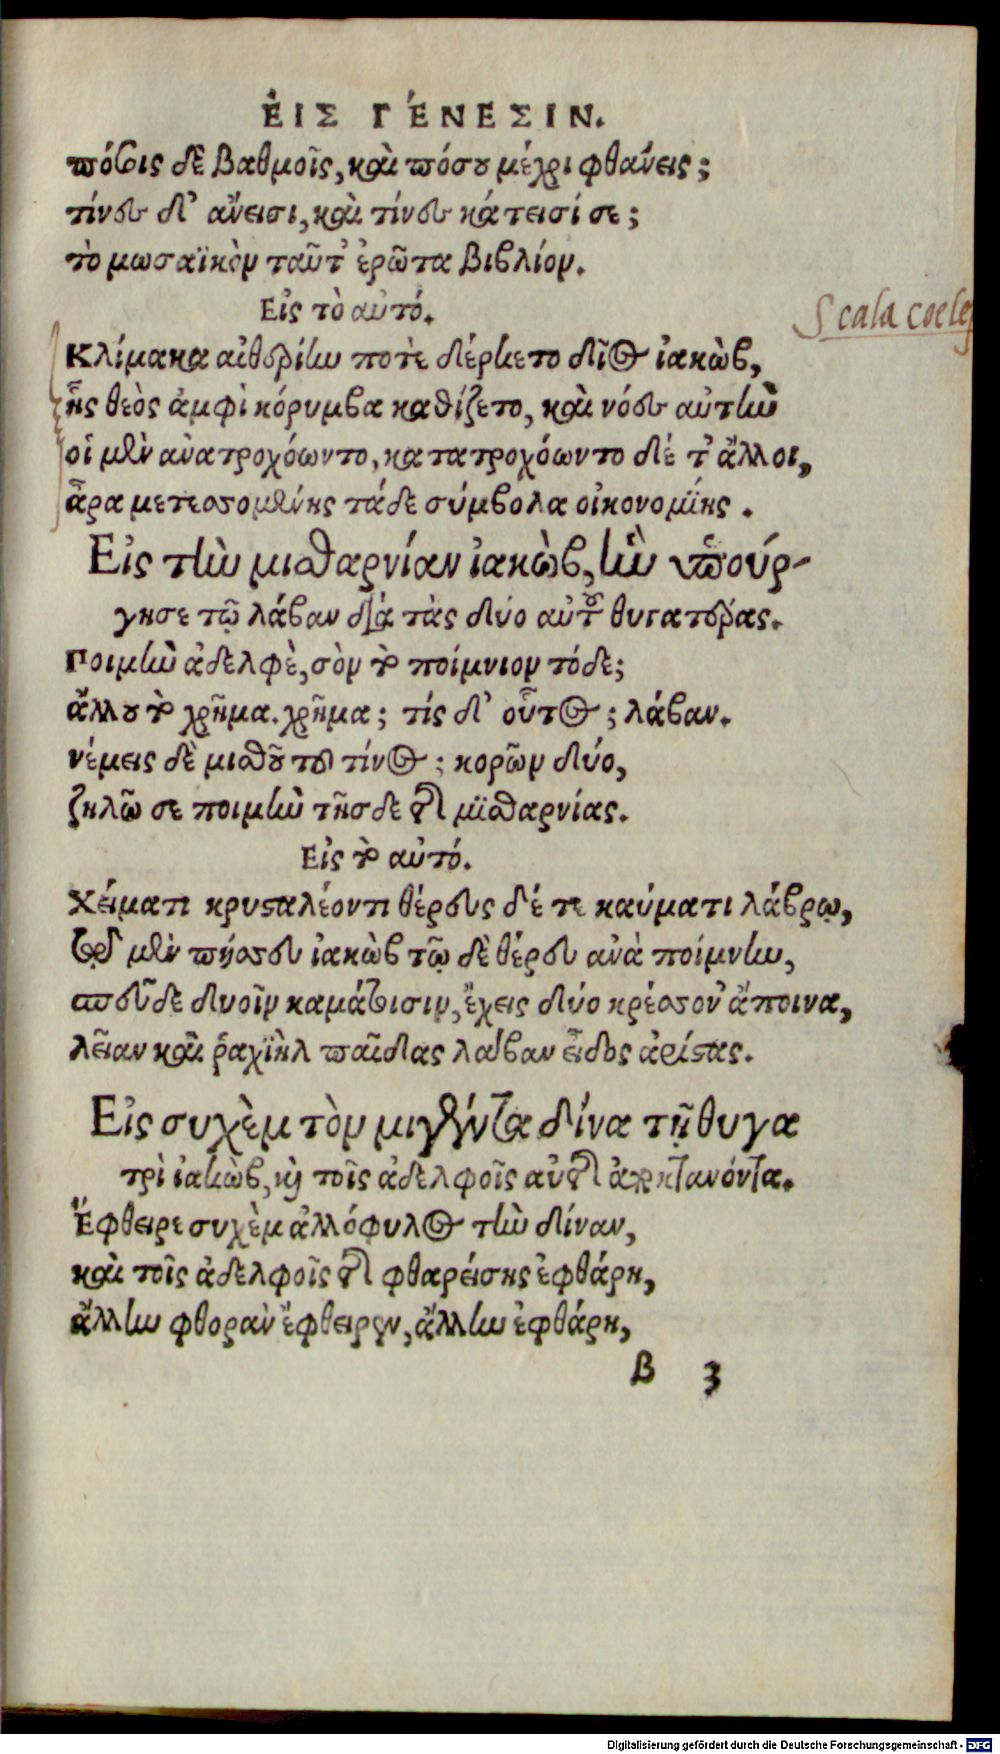 ἘΙΣ ΓΈΝΕΣΙΝ.
πόσοις δὲ βαθμοῖς, καὶ πόσου μέχρι φθάνεις;
τίνες δ' ἄνεισι, καὶ τίνες κάτεισί σε;
τὸ μωσαϊκὸν ταῦτ' ἐρῶτα βιβλίον.
Εἰς τὸ αὐτό.
Scala coeles
Κλίμακα αἰθερίην ποτὲ δέρκετο δῖος ἰακὼβ,
ἧς θεὸς ἀμφὶ κόρυμβα καθίζετο, καὶ νόες αὐτὴν
οἱ μὲν ἀνατροχόωντο, κατατροχόωντο δέ τ' ἄλλοι,
ἆρα μετεσσομένης τάδε σύμβολα οἰκονομίης.
Εἰς τὴν μισθαρνίαν ἰακὼβ, ἣν ὑπούρ-
γησε τῷ λάβαν διὰ τὰς δύο αὐτοῦ θυγατέρας.
Ποιμὴν ἀδελφὲ, σὸν τὸ ποίμνιον τόδε;
ἄλλου τὸ χρῆμα. χρῆμα; τίς δ' οὗτος; λάβαν.
νέμεις δὲ μισθοῦ τοῦ τίνος; κορῶν δύο,
ζηλῶ σε ποιμὴν τῆσδε τῆς μισθαρνίας.
Εἰς τὸ αὐτό.
Χείματι κρυσταλέοντι θέρευς δέ τε καύματι λάβρῳ,
τῷδε μὲν πήσσευ ἰακὼβ τῷ δὲ θέρευ ἀνὰ ποίμνην,
ἀλλὰ δυοῖν καμάτοισιν, ἔχεις δύο κρέσσον' ἄποινα,
λείαν καὶ ῥαχιὴλ παῖδας λάβαν εἶδος ἀρίστας.
Εἰς συχὲμ τὸν μιγέντα δίνᾳ τῇ θυγα
τρὶ ἰακὼβ, καὶ τοῖς ἀδελφοῖς αὐτῆς ἀποκτανόντα.
Ἔφθειρε συχὲμ ἀλλόφυλος τὴν δίναν,
καὶ τοῖς ἀδελφοῖς τῆς φθαρείσης ἐφθάρη,
ἄλλην φθορὰν ἔφθειρεν, ἄλλην ἐφθάρη,
Β 3
Digitalisierung gefördert durch die Deutsche Forschungsgemeinschaft - DFG